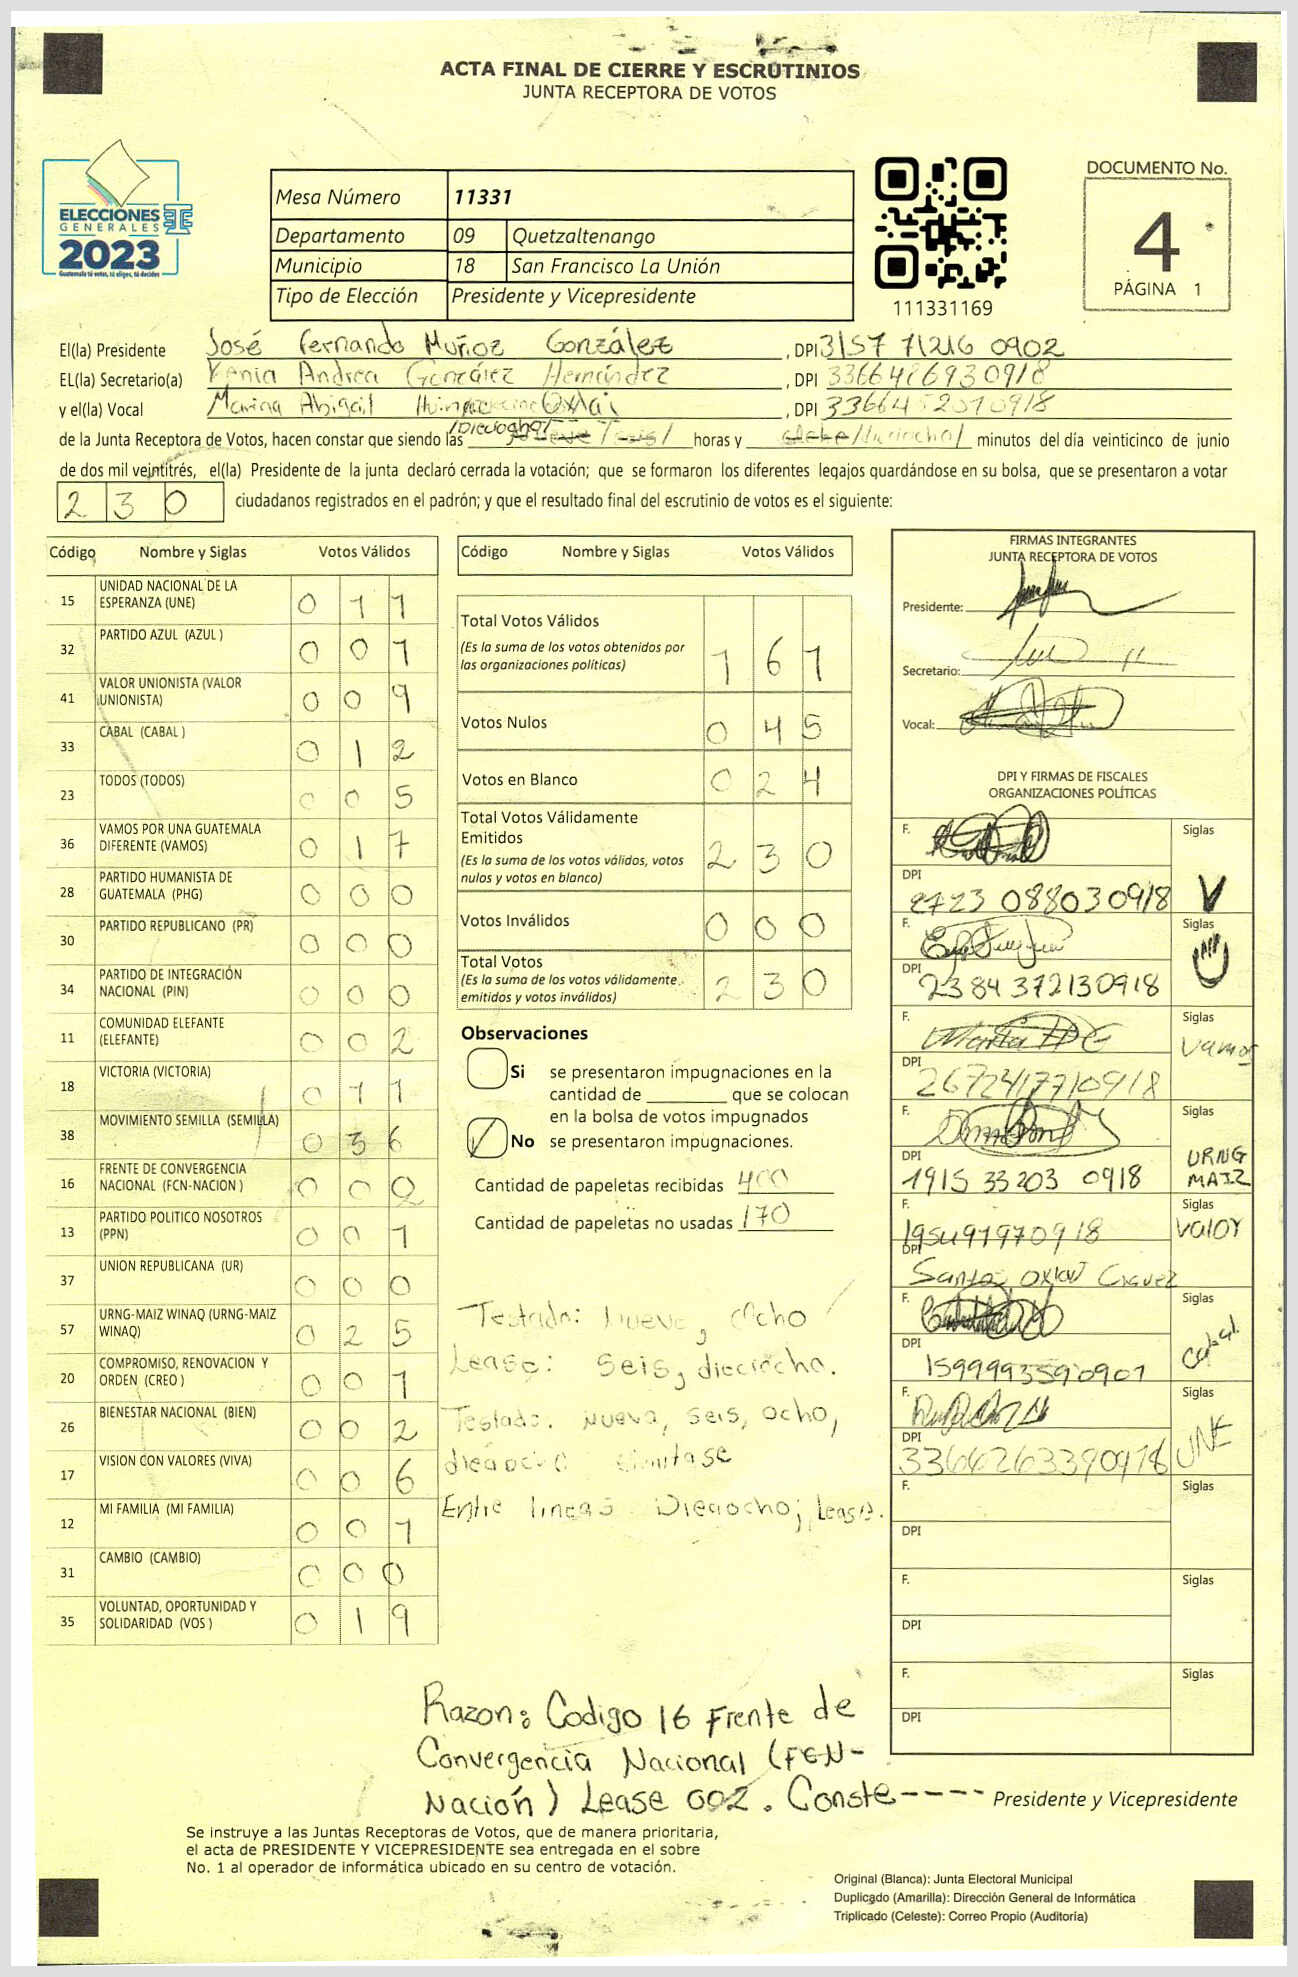 ACTA FINAL DE CIERRE Y ESCRUTINIOS
JUNTA RECEPTORA DE VOTOS
ELECCIONES
GENERALES
2023
Guatemala tú votas, tú eliges, tú decides
Mesa Número 11331
Departamento 09 Quetzaltenango
Municipio 18 San Francisco La Unión
Tipo de Elección Presidente y Vicepresidente
111331169
DOCUMENTO No.
4
PÁGINA 1
El(la) Presidente José Fernando Muñoz González, DPI 3157 71216 0902
EL(la) Secretario(a) Kenia Andrea González Hernández, DPI 3366486930918
y el(la) Vocal Marina Abigail Oxlaj, DPI 3366452010918
de la Junta Receptora de Votos, hacen constar que siendo las horas y minutos del día veinticinco de junio
de dos mil veintitrés, el(la) Presidente de la junta declaró cerrada la votación; que se formaron los diferentes legajos quardándose en su bolsa, que se presentaron a votar
230 ciudadanos registrados en el padrón; y que el resultado final del escrutinio de votos es el siguiente:
Código Nombre y Siglas Votos Válidos
15 UNIDAD NACIONAL DE LA ESPERANZA (UNE) 0 1 1
32 PARTIDO AZUL (AZUL ) 0 0 1
41 VALOR UNIONISTA (VALOR UNIONISTA) 0 0 9
33 CABAL (CABAL ) 0 1 2
23 TODOS (TODOS) 0 0 5
36 VAMOS POR UNA GUATEMALA DIFERENTE (VAMOS) 0 1 7
28 PARTIDO HUMANISTA DE GUATEMALA (PHG) 0 0 0
30 PARTIDO REPUBLICANO (PR) 0 0 0
34 PARTIDO DE INTEGRACIÓN NACIONAL (PIN) 0 0 0
11 COMUNIDAD ELEFANTE (ELEFANTE) 0 0 2
18 VICTORIA (VICTORIA) 0 1 1
38 MOVIMIENTO SEMILLA (SEMILLA) 0 3 6
16 FRENTE DE CONVERGENCIA NACIONAL (FCN-NACION ) 0 0 2
13 PARTIDO POLITICO NOSOTROS (PPN) 0 0 1
37 UNION REPUBLICANA (UR) 0 0 0
57 URNG-MAIZ WINAQ (URNG-MAIZ WINAQ) 0 2 5
20 COMPROMISO, RENOVACION Y ORDEN (CREO ) 0 0 1
26 BIENESTAR NACIONAL (BIEN) 0 0 2
17 VISION CON VALORES (VIVA) 0 0 6
12 MI FAMILIA (MI FAMILIA) 0 0 1
31 CAMBIO (CAMBIO) 0 0 0
35 VOLUNTAD, OPORTUNIDAD Y SOLIDARIDAD (VOS ) 0 1 9
Código Nombre y Siglas Votos Válidos
Total Votos Válidos 1 6 1
(Es la suma de los votos obtenidos por
las organizaciones políticas)
Votos Nulos 0 4 5
Votos en Blanco 0 2 4
Total Votos Válidamente
Emitidos 2 3 0
(Es la suma de los votos válidos, votos
nulos y votos en blanco)
Votos Inválidos 0 0 0
Total Votos 2 3 0
(Es la suma de los votos válidamente
emitidos y votos inválidos)
Observaciones
Si se presentaron impugnaciones en la
cantidad de ________ que se colocan
en la bolsa de votos impugnados
No se presentaron impugnaciones.
Cantidad de papeletas recibidas 400
Cantidad de papeletas no usadas 170
Testado: nueve, ocho
Lease: seis, dieciocho.
Testado. nueve, seis, ocho,
Entre lineas Dieciocho; Lease.
FIRMAS INTEGRANTES
JUNTA RECEPTORA DE VOTOS
Presidente:
Secretario:
Vocal:
DPI Y FIRMAS DE FISCALES
ORGANIZACIONES POLÍTICAS
F. Siglas
DPI 2723 088030918 V
F. Siglas
DPI 2384 372130918
F. Siglas Vamos
DPI 2672417710918
F. Siglas
DPI 1915 33203 0918 URNG MAIZ
F. 195497970918 Siglas Valor
DPI Santos Oxlaj Chavez
F. Siglas
DPI 1599993590901 Cabal.
F. Siglas
DPI 33666263390918 UNE
F. Siglas
DPI
F. Siglas
DPI
F. Siglas
DPI
Razon: Codigo 16 Frente de
Convergencia Nacional (FCN-
Nación) Lease 002. Conste----
Presidente y Vicepresidente
Se instruye a las Juntas Receptoras de Votos, que de manera prioritaria,
el acta de PRESIDENTE Y VICEPRESIDENTE sea entregada en el sobre
No. 1 al operador de informática ubicado en su centro de votación.
Original (Blanca): Junta Electoral Municipal
Duplicado (Amarilla): Dirección General de Informática
Triplicado (Celeste): Correo Propio (Auditoría)